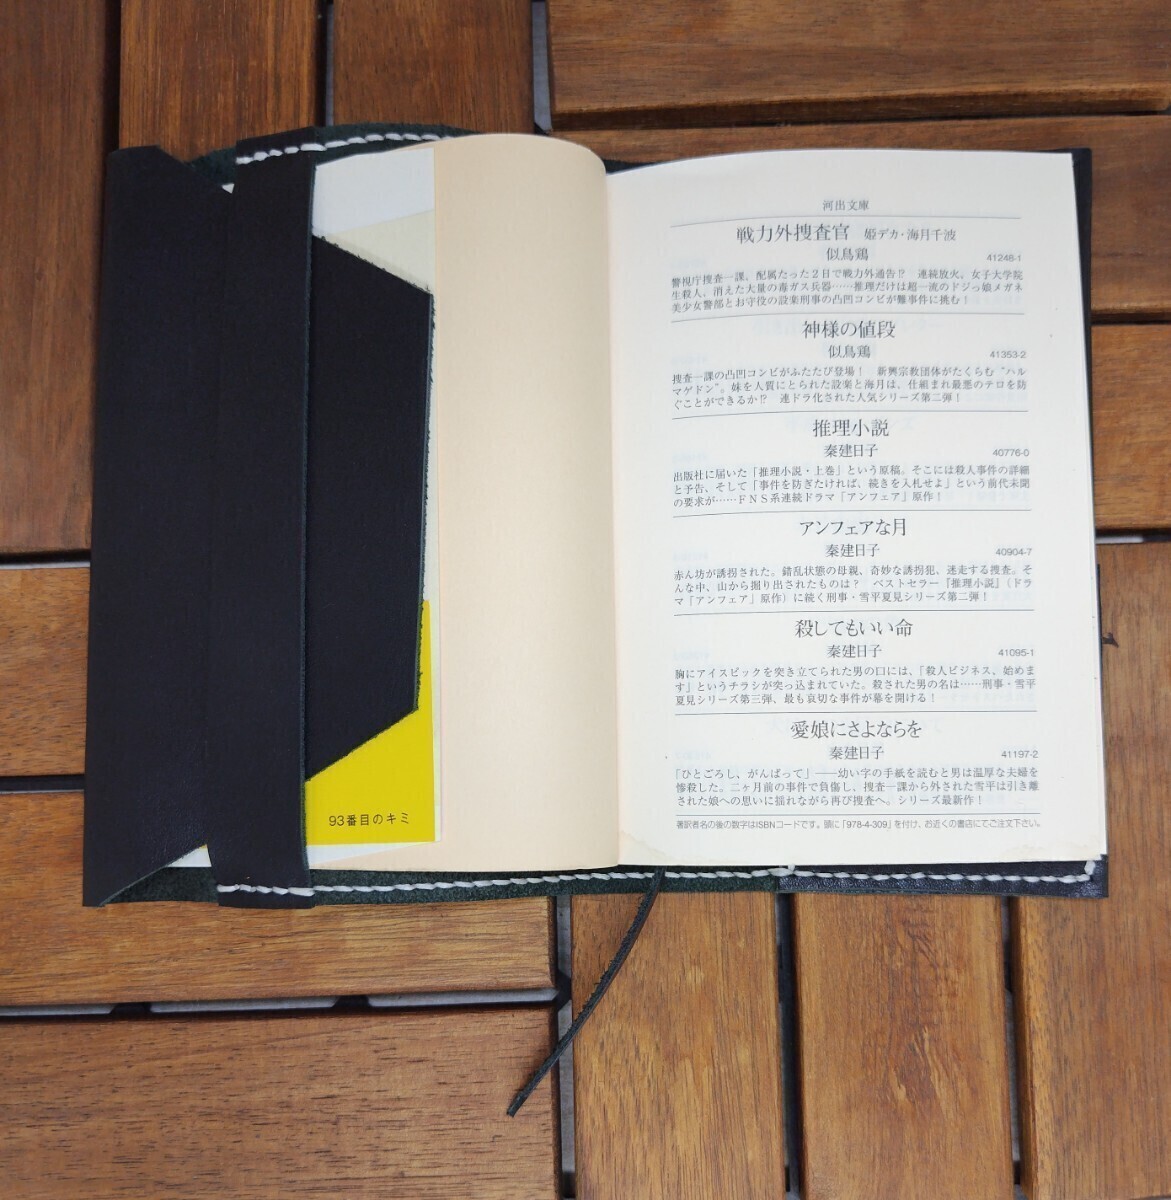 93番目のキミ
河出文庫
戦力外捜査官 姫デカ・海月千波
似鳥鶏
41248-1
警視庁捜査一課、配属たった2日で戦力外通告!? 連続放火、女子大学院
生殺人、消えた大量の毒ガス兵器……推理だけは超一流のドジっ娘メガネ
美少女警部とお守役の設楽刑事の凸凹コンビが難事件に挑む!
神様の値段
似鳥鶏
41353-2
捜査一課の凸凹コンビがふたたび登場! 新興宗教団体がたくらむ“ハル
マゲドン”。妹を人質にとられた設楽と海月は、仕組まれ最悪のテロを防
ぐことができるか!? 連ドラ化された人気シリーズ第二弾!
推理小説
秦建日子
40776-0
出版社に届いた「推理小説・上巻」という原稿。そこには殺人事件の詳細
と予告、そして「事件を防ぎたければ、続きを入札せよ」という前代未聞
の要求が……FNS系連続ドラマ「アンフェア」原作!
アンフェアな月
秦建日子
40904-7
赤ん坊が誘拐された。錯乱状態の母親、奇妙な誘拐犯、迷走する捜査。そ
んな中、山から掘り出されたものは? ベストセラー『推理小説』(ドラ
マ「アンフェア」原作)に続く刑事・雪平夏見シリーズ第二弾!
殺してもいい命
秦建日子
41095-1
胸にアイスピックを突き立てられた男の口には、「殺人ビジネス、始めま
す」というチラシが突っ込まれていた。殺された男の名は……刑事・雪平
夏見シリーズ第三弾、最も哀切な事件が幕を開ける!
愛娘にさよならを
秦建日子
41197-2
「ひとごろし、がんばって」――幼い字の手紙を読むと男は温厚な夫婦を
惨殺した。二ヶ月前の事件で負傷し、捜査一課から外された雪平は引き離
された娘への思いに揺れながら再び捜査へ。シリーズ最新作!
著訳者名の後の数字はISBNコードです。頭に「978-4-309」を付け、お近くの書店にてご注文下さい。